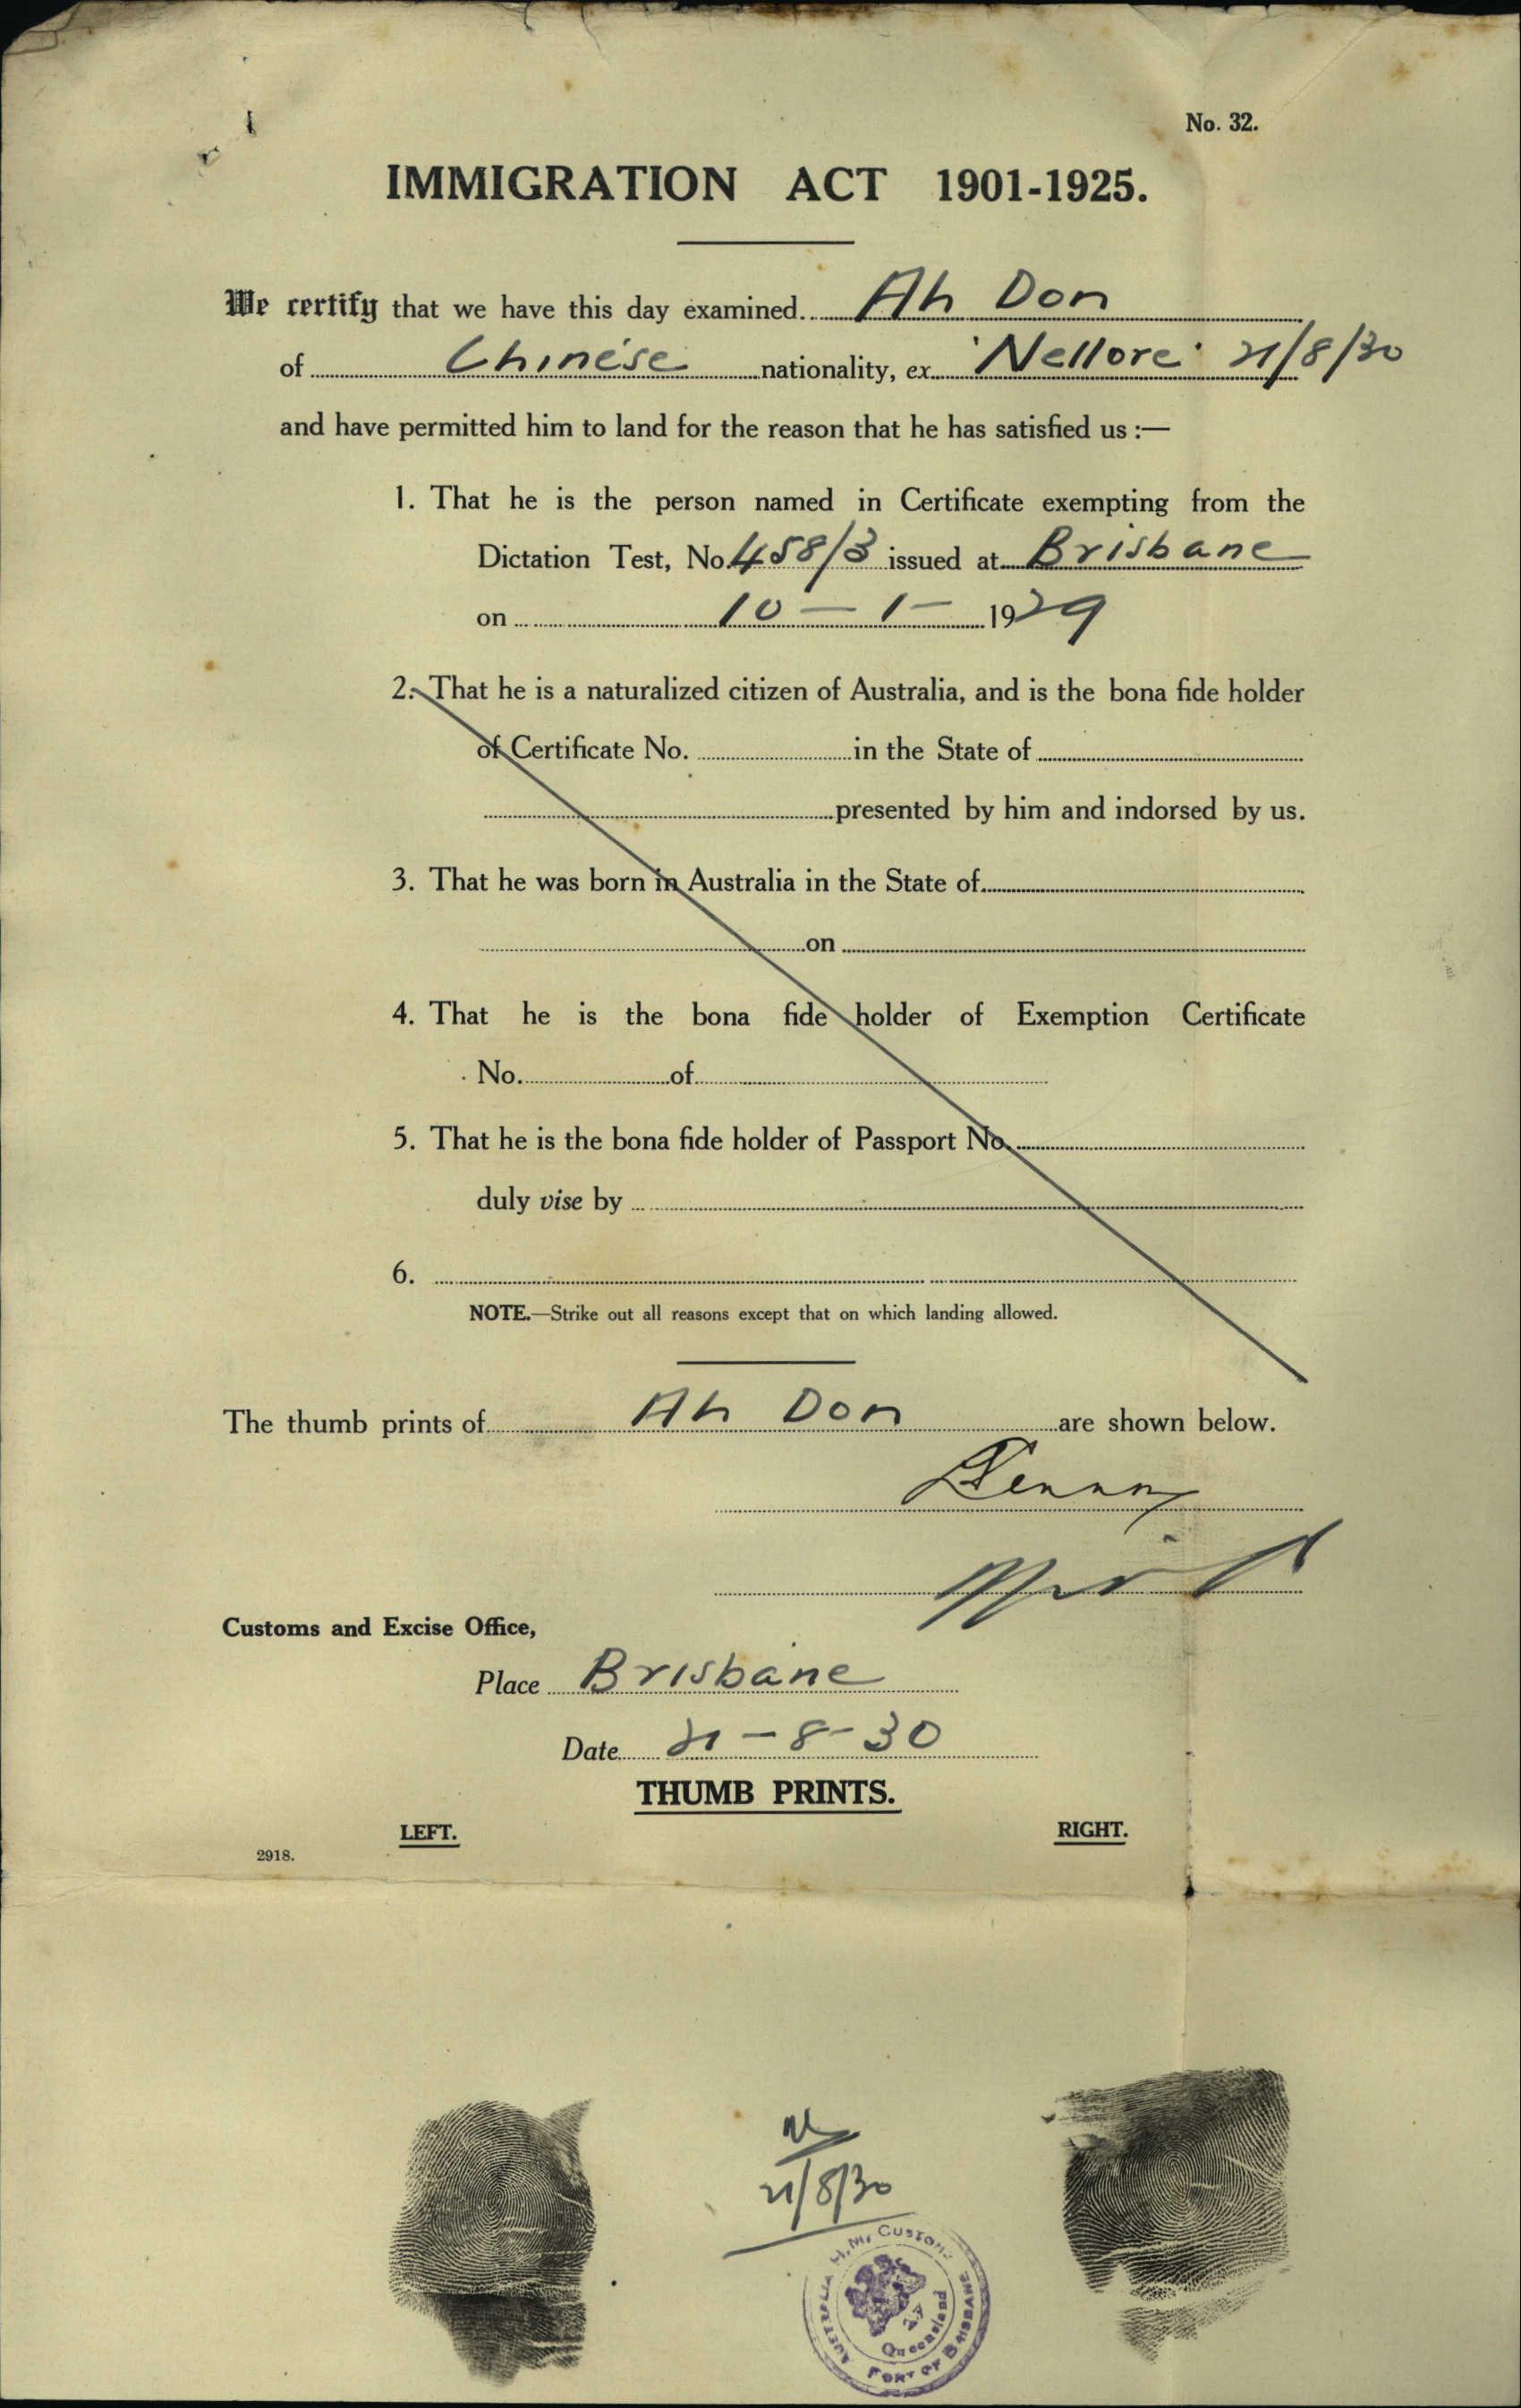 No. 32.
IMMIGRATION ACT 1901-1925.
We certify that we have this day examined Ah Don
of Chinese nationality, ex 'Nellore' 21/8/30
and have permitted him to land for the reason that he has satisfied us :—
1. That he is the person named in Certificate exempting from the
Dictation Test, No. 458/3 issued at Brisbane
on 10 – 1 – 1929
2. That he is a naturalized citizen of Australia, and is the bona fide holder
of Certificate No. in the State of
presented by him and indorsed by us.
3. That he was born in Australia in the State of
on
4. That he is the bona fide holder of Exemption Certificate
No. of
5. That he is the bona fide holder of Passport No.
duly vise by
6.
NOTE.—Strike out all reasons except that on which landing allowed.
The thumb prints of Ah Don are shown below.
Customs and Excise Office,
Place Brisbane
Date 21-8-30
THUMB PRINTS.
LEFT. RIGHT.
2918.
21/8/30
H.M. Customs
AUSTRALIA
Queensland
PORT OF BRISBANE